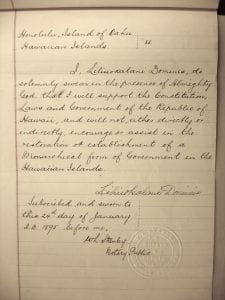 Honolulu, Island of Oahu
Hawaiian Islands. } ss
I, Liliuokalani Dominis, do
solemnly swear in the presence of Almighty
God that I will support the Constitution,
Laws and Government of the Republic of
Hawaii, and will not, either directly or
indirectly, encourage or assist in the
restoration or establishment of a
Monarchical form of Government in the
Hawaiian Islands.
Liliuokalani Dominis
Subscribed and sworn to
this 24th day of January
A.D. 1895 before me,
W.L. Stanley
Notary Public